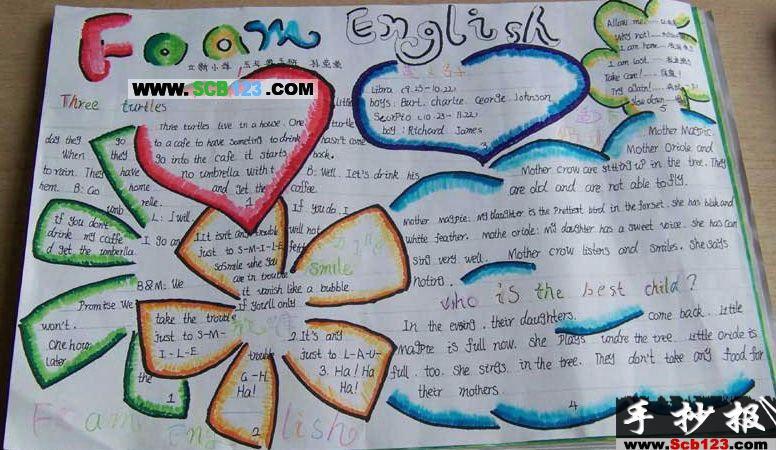 Foam English
www.SCB123.com
Three turtles
Three turtles live in a house. One
to a cafe to have someting to drink
go into the cafe it starts
no umbrella with t
and get the
little
turtle
hasn't come
back.
B: Well. Iet's drink his
coffee.
day they go
When they
to rain. They have
hem. B: Go home
umb relle.
L: I will
I go an
B&M: We
Promise We
won't.
One hour
Later
the
1
If you don't
drink my caffe
d get the umberlla.
If you do. I
will not
1
IIt isn't any trouble
just to S-M-I-L-E
SoSmile whe you
are in trouble
it vanish like a bubble.
If you'll only
take the trouble
just to S-M-
I-L-E
smile
2.It's any
trouble
just to L-A-U-
G-H.
3. Ha! Ha
Ha!
Ha!
2
Libra (9.23-10.22)
boys: Bart. charlie. George. Johnson
Scorpio (10.23-11.22)
boy: Richard James
3
Allow me.
Why not!
I am home.
I am lost.
Take care!
Try again!
Slow down
5
Mother Magpie.
Mother Oriole and
Mother crow are sitting up in the tree. They
are old and are not able to fly.
Mother magpie: my daughter is the Prettest bird in the forset. she has blak and
white feather. mothe oriole: My daughter has a sweet voice. she has can
sing very well. Mother crow listens and smiles. She says
noting.
who is the best child?
In the evsing. their daughters. come back. Little
magpie is full now. she Plays undre the tree. Little Oriole is
full. too. She strgs. in the tree. They don't take any food for
their mothers.
4
Foam English
手抄报
www.Scb123.com